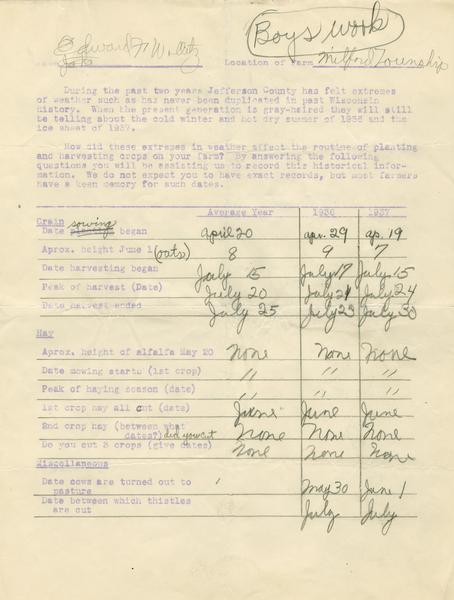 Boys work
Edward F. W
Location of Farm Milford Township
During the past two years Jefferson County has felt extremes
of weather such as has never been duplicated in past Wisconsin
history. When the present generation is gray-haired they will still
be telling about the cold winter and hot dry summer of 1936 and the
ice sheet of 1937.
How did these extremes in weather affect the routine of planting
and harvesting crops on your farm? By answering the following
questions you will be assisting us to record this historical infor-
mation. We do not expect you to have exact records, but most farmers
have a keen memory for such dates.
Average Year 1936 1937
Grain sowing
Date began April 20 apr. 29 ap. 19
Aprox. height June 1 (oats) 8 9 7
Date harvesting began July 15 July 17 July 15
Peak of harvest (Date) July 20 July 21 July 24
Date harvest ended July 25 July 23 July 30
Hay
Aprox. height of alfalfa May 20 None None None
Date mowing starts (1st crop) " " "
Peak of haying season (date) " " "
1st crop hay all cut (date) June June June
2nd crop hay (between what
dates?) did you cut None None None
Do you cut 3 crops (give dates) None None None
Miscellaneous
Date cows are turned out to
pasture May 30 June 1
Date between which thistles
are cut July July